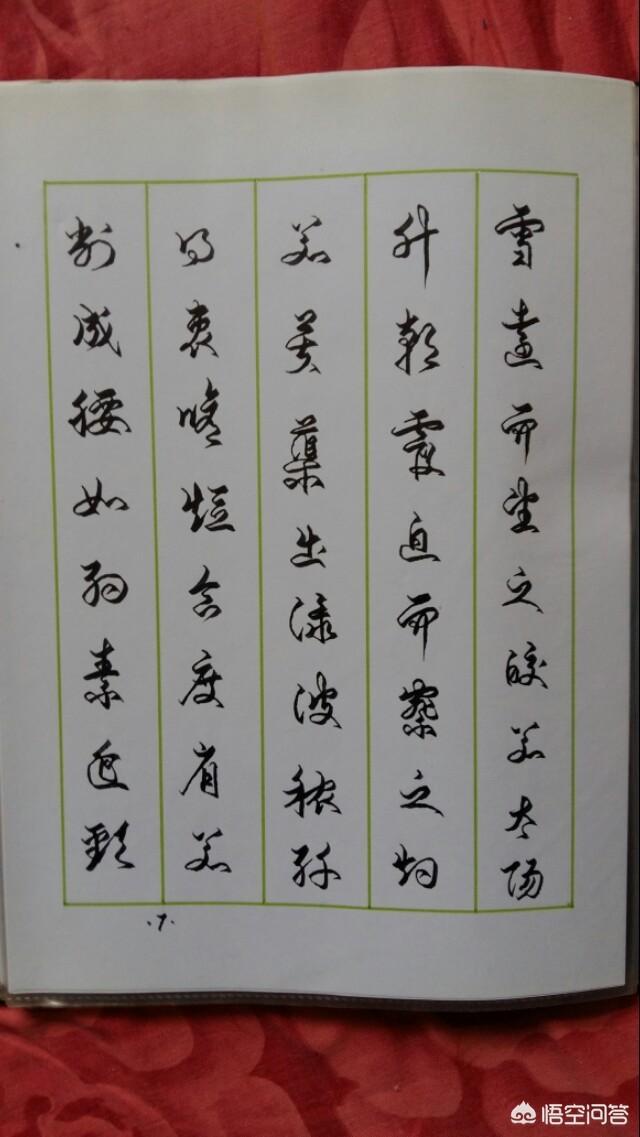 雪遠而望之皎若太陽
升朝霞迫而察之灼
若芙蕖出渌波穠纖
得衷脩短合度肩若
削成腰如約素延頸
·7·
悟空问答